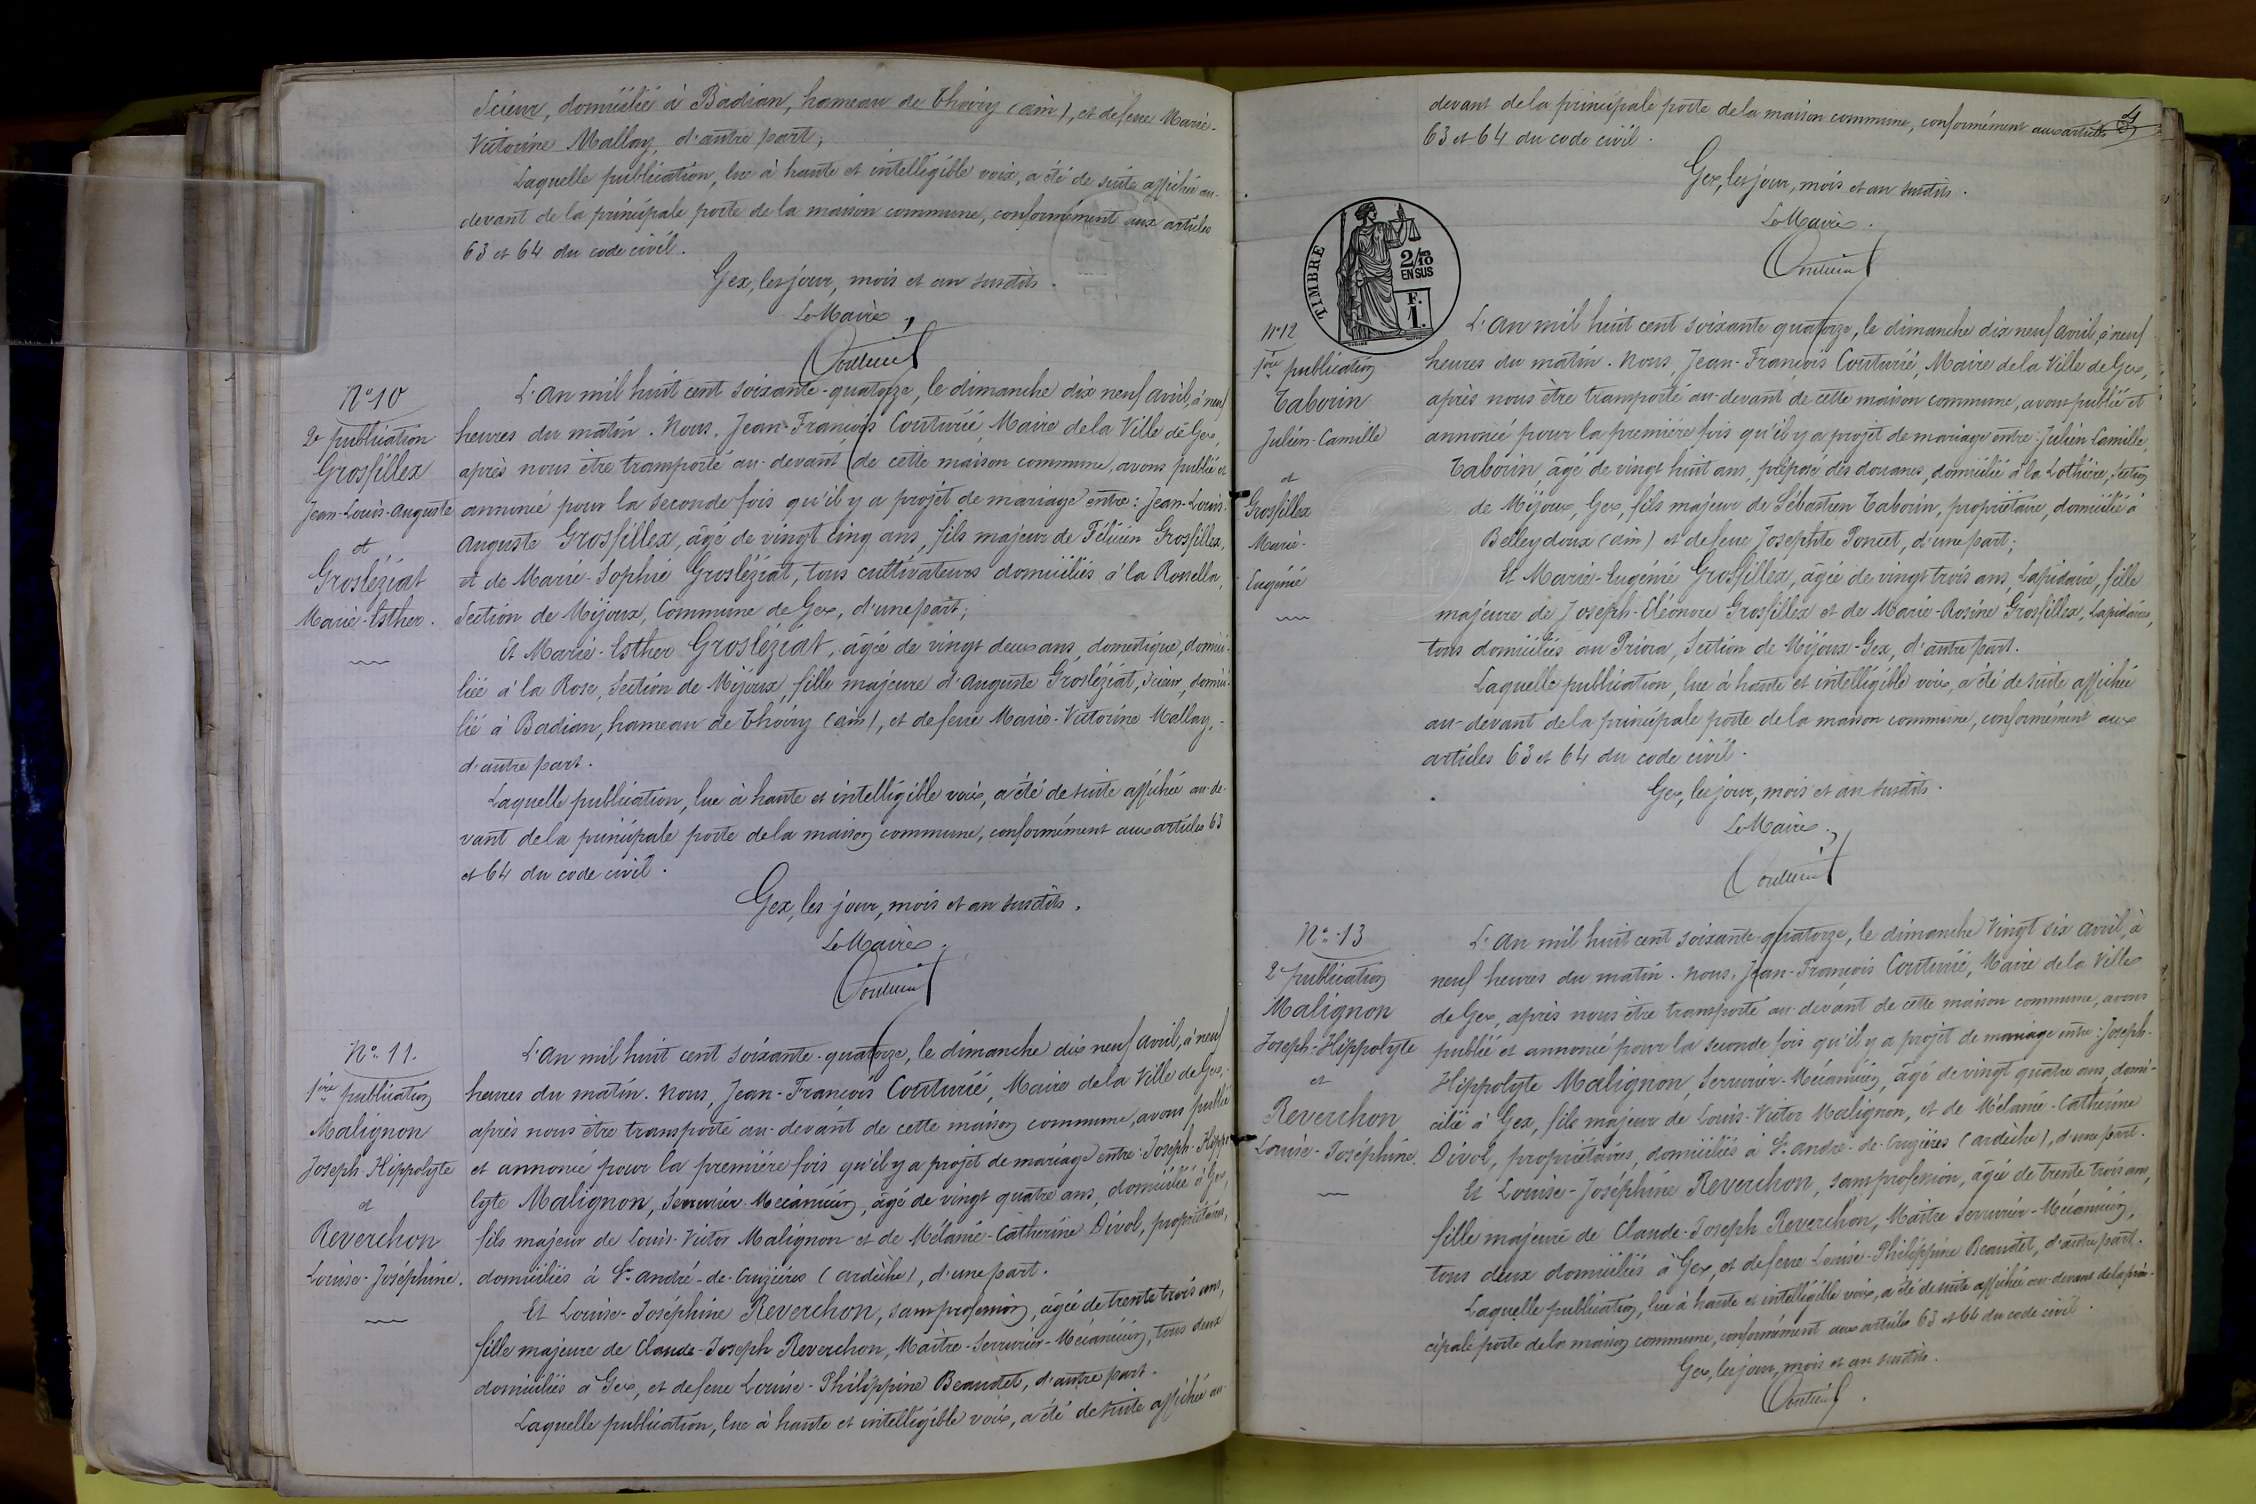 Scieur, domicilié à Badian, hameau de Thoiry (ain), et de feue Marie-
Victorine Mallay, d'autre part;
Laquelle publication, lue à haute et intelligible voix, a été de suite affichée au-
devant de la principale porte de la maison commune, conformément aux articles
63 et 64 du code civil.
Gex, les jour, mois et an susdits.
Le Maire,
N° 10
2e publication
Grosfillex
Jean-Louis-Auguste
et
Grosléziat
Marie-Esther.
L'An mil huit cent soixante-quatorze, le dimanche dix neuf avril, à neuf
heures du matin. Nous, Jean-François Couturié, Maire de la Ville de Gex,
après nous être transporté au-devant de cette maison commune, avons publié et
annoncé pour la seconde fois qu'il y a projet de mariage entre: Jean-Louis-
Auguste Grosfillex, âgé de vingt cinq ans, fils majeur de Félicien Grosfillex,
et de Marie-Sophie Grosléziat, tous cultivateurs domiciliés à la Rosella,
Section de Mijoux, Commune de Gex, d'une part;
Et Marie-Esther Grosléziat, âgée de vingt deux ans, domestique, domici-
liée à la Rose, Section de Mijoux, fille majeure d'Auguste Grosléziat, scieur, domici-
lié à Badian, hameau de Thoiry (ain), et de feue Marie-Victorine Mallay,
d'autre part.
Laquelle publication, lue à haute et intelligible voix, a été de suite affichée au-de-
vant de la principale porte de la maison commune, conformément aux articles 63
et 64 du code civil.
Gex, les jour, mois et an susdits.
Le Maire,
N° 11.
1ère publication
Malignon
Joseph-Hippolyte
et
Reverchon
Louise-Joséphine.
L'An mil huit cent soixante-quatorze, le dimanche dix neuf avril, à neuf
heures du matin. Nous, Jean-François Couturié, Maire de la Ville de Gex,
après nous être transporté au-devant de cette maison commune, avons publié
et annoncé pour la première fois qu'il y a projet de mariage entre: Joseph-Hippo-
lyte Malignon, Serrurier-Mécanicien, âgé de vingt quatre ans, domicilié à Gex,
fils majeur de Louis-Victor Malignon et de Mélanie-Catherine Divol, propriétaires,
domiciliés à St andré-de-Cruzières (ardèche), d'une part.
Et Louise-Joséphine Reverchon, sans profession, âgée de trente trois ans,
fille majeure de Claude-Joseph Reverchon, Maître-Serrurier-Mécanicien, tous deux
domiciliés à Gex, et de feue Louise-Philippine Beaudet, d'autre part.
Laquelle publication, lue à haute et intelligible voix, a été de suite affichée au-
devant de la principale porte de la maison commune, conformément aux articles
63 et 64 du code civil.
Gex, les jour, mois et an susdits.
Le Maire.
TIMBRE
2/10
EN SUS
F.
1.
N° 12
1ère publication
Tabouin
Julien-Camille
et
Grosfillex
Marie-
Eugénie
L'An mil huit cent soixante quatorze, le dimanche dix neuf avril, à neuf
heures du matin. Nous, Jean-François Couturié, Maire de la Ville de Gex,
après nous être transporté au-devant de cette maison commune, avons publié et
annoncé pour la première fois qu'il y a projet de mariage entre: Julien Camille
Tabouin, âgé de vingt huit ans, préposé des douanes, domicilié à la Section
de Mijoux, Gex, fils majeur de Sébastien Tabouin, propriétaire, domicilié à
Belleydoux (ain) et de feue Josephte Poncet, d'une part;
Et Marie-Eugénie Grosfillex, âgée de vingt trois ans, Lapidaire, fille
majeure de Joseph-Eléonore Grosfillex et de Marie-Rosine Grosfillex, Lapidaires,
tous domiciliés au Section de Mijoux-Gex, d'autre part.
Laquelle publication, lue à haute et intelligible voix, a été de suite affichée
au-devant de la principale porte de la maison commune, conformément aux
articles 63 et 64 du code civil.
Gex, les jour, mois et an susdits.
Le Maire,
N° 13
2e publication
Malignon
Joseph-Hippolyte
et
Reverchon
Louise-Joséphine.
L'An mil huit cent soixante-quatorze, le dimanche Vingt six avril, à
neuf heures du matin. Nous, Jean-François Couturié, Maire de la Ville
de Gex, après nous être transporté au-devant de cette maison commune, avons
publié et annoncé pour la seconde fois qu'il y a projet de mariage entre: Joseph-
Hippolyte Malignon, Serrurier-Mécanicien, âgé de vingt quatre ans, domi-
cilié à Gex, fils majeur de Louis-Victor Malignon, et de Mélanie-Catherine
Divol, propriétaires, domiciliés à St andré-de-Cruzières (ardèche), d'une part.
Et Louise-Joséphine Reverchon, sans profession, âgée de trente trois ans,
fille majeure de Claude-Joseph Reverchon, Maître Serrurier-Mécanicien,
tous deux domiciliés à Gex, et de feue Louise-Philippine Beaudet, d'autre part.
Laquelle publication, lue à haute et intelligible voix, a été de suite affichée au-devant de la prin-
cipale porte de la maison commune, conformément aux articles 63 et 64 du code civil.
Gex, les jour, mois et an susdits.